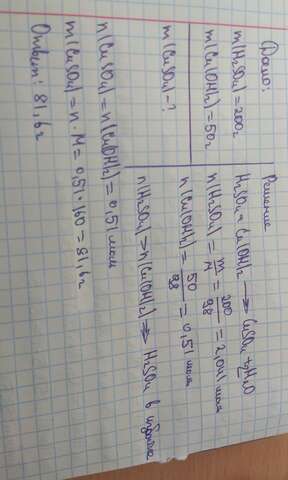 Дано:
m(H₂SO₄)=200г
m(Cu(OH)₂)=50г
m(CuSO₄)-?
Решение
H₂SO₄ + Cu(OH)₂ → CuSO₄ + 2H₂O
n(H₂SO₄) = m/M = 200/98 = 2,041 моль
n(Cu(OH)₂) = 50/98 = 0,51 моль
n(H₂SO₄) > n(Cu(OH)₂) ⇒ H₂SO₄ в избытке
n(CuSO₄) = n(Cu(OH)₂) = 0,51 моль
m(CuSO₄) = n·M = 0,51·160 = 81,6г
Ответ: 81,6г